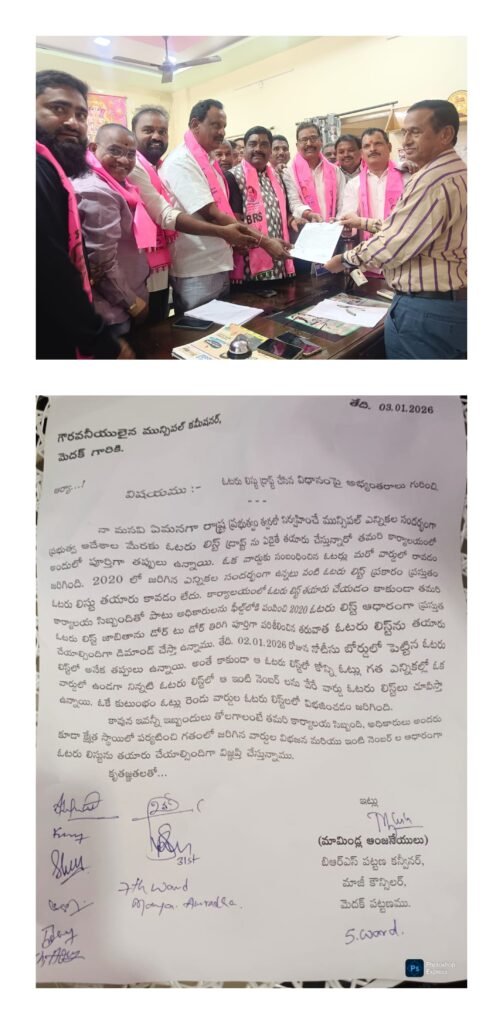 BRS
తేది. 03.01.2026
గౌరవనీయులైన మున్సిపల్ కమీషనర్,
మెదక్ గారికి.
ఆర్యా...!
విషయము :- ఓటరు లిస్టు డ్రాఫ్ట్ చేసిన విధానంపై అభ్యంతరాలు గురించి
- - -
నా మనవి ఏమనగా రాష్ట్ర ప్రభుత్వం త్వరలో నిర్వహించే మున్సిపల్ ఎన్నికల సందర్భంగా
ప్రభుత్వ ఆదేశాల మేరకు ఓటరు లిస్ట్ డ్రాప్ట్ ను ఏదైతే తయారు చేస్తున్నారో తమరి కార్యాలయంలో
అందులో పూర్తిగా తప్పులు ఉన్నాయి. ఒక వార్డుకు సంబంధించిన ఓటర్లు మరో వార్డులో రావడం
జరిగింది. 2020 లో జరిగిన ఎన్నికల సందర్భంగా ఉన్నటు వంటి ఓటరు లిస్ట్ ప్రకారం ప్రస్తుతం
ఓటరు లిస్టు తయారు కావడం లేదు. కార్యాలయంలో ఓటరు లిస్ట్ తయారు చేయడం కాకుండా తమరి
కార్యాలయ సిబ్బందితో పాటు అధికారులను ఫీల్డ్‌లోకి పంపించి 2020 ఓటరు లిస్ట్ ఆధారంగా ప్రస్తుత
ఓటరు లిస్ట్ జాబితాను డోర్ టు డోర్ తిరిగి పూర్తిగా పరిశీలించిన తరువాత ఓటరు లిస్ట్‌ను తయారు
చేయాల్సిందిగా డిమాండ్ చేస్తా ఉన్నాము. తేది. 02.01.2026 రోజున నోటీసు బోర్డులో పెట్టిన ఓటరు
లిస్ట్‌లో అనేక తప్పులు ఉన్నాయి. అంతే కాకుండా ఆ ఓటరు లిస్ట్‌లో కోన్ని ఓట్లు గత ఎన్నికల్లో ఓక
వార్డులో ఉండగా నిన్నటి ఓటరు లిస్ట్‌లో ఆ ఇంటి నెంబర్ లను వేరే వార్డు ఓటరు లిస్ట్‌లు చూపిస్తా
ఉన్నాయి. ఓకే కుటుంభం ఓట్లు రెండు వార్డుల ఓటరు లిస్ట్‌లలో విభజించడం జరిగింది.
కావున ఇవన్నీ ఇబ్బందులు తోలగాలంటే తమరి కార్యాలయ సిబ్బంది, అధికారులు అందరు
కూడా క్షేత్ర స్థాయిలో పర్యటించి గతంలో జరిగిన వార్డుల విభజన మరియు ఇంటి నెంబర్ ల ఆధారంగా
ఓటరు లిస్టును తయారు చేయాల్సిందిగా విజ్ఞప్తి చేస్తున్నాము.
కృతజ్ఞతలతో...
ఇట్లు
(మామిండ్ల ఆంజనేయులు)
బిఆర్ఎస్ పట్టణ కన్వీనర్,
మాజీ కౌన్సిలర్,
మెదక్ పట్టణము.
5. ward.
31st
7th Ward
Ps Photoshop
Express